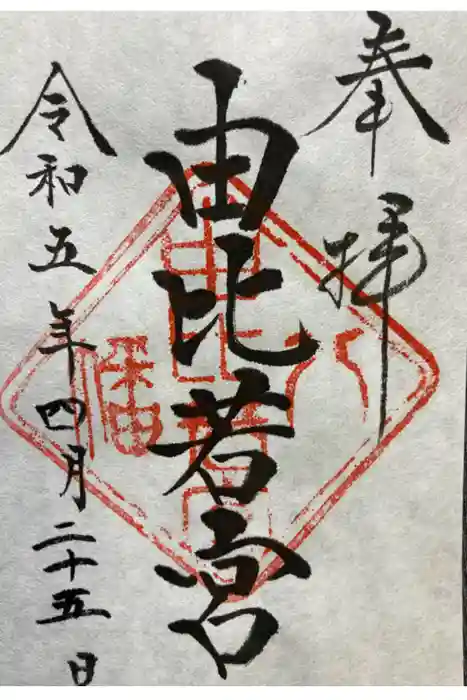 奉拝
由比若宮
令和五年四月二十五日
八幡